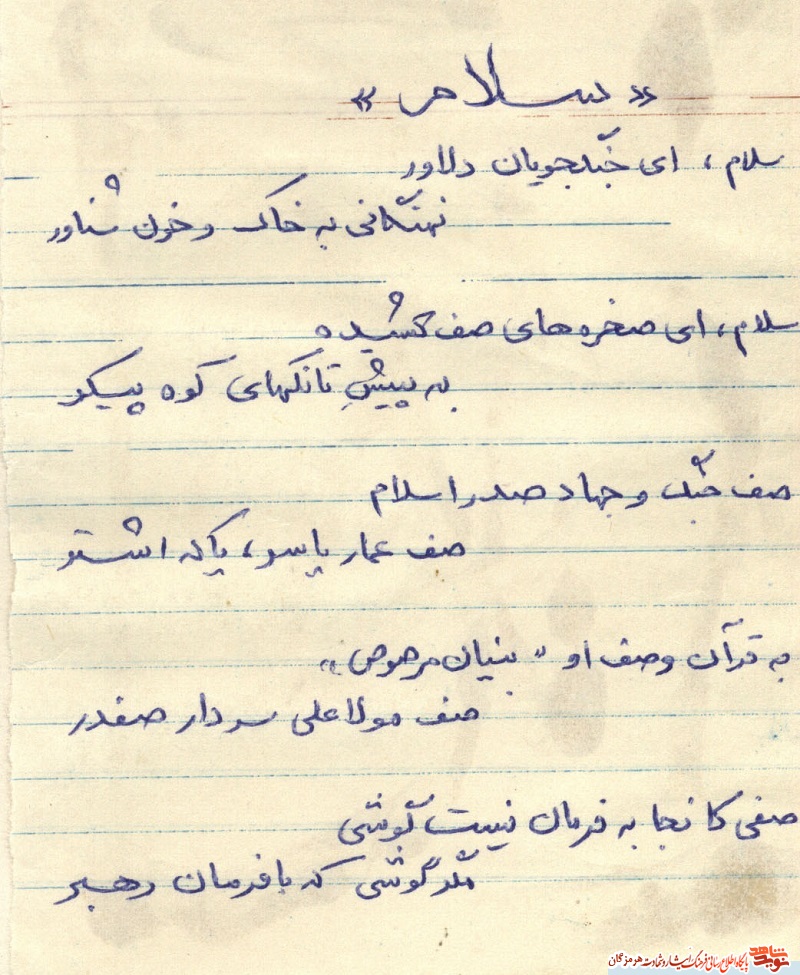 «سلام»
سلام، ای جنگجویان دلاور
نهنگانی به خاک و خون شناور
سلام، ای صخره‌های صف کشیده
به پیشِ تانکهای کوه پیکر
صف جنگ و جهاد صدر اسلام
صف عمار یاسر،
به قرآن وصف او "بنیان مرصوص"
صف مولا علی سردار صفدر
صفی کانجا به فرمان نیست گوشی
مگر گوشی که با فرمان رهبر
نوید شاهد
پایگاه اطلاع رسانی فرهنگ ایثار و شهادت هرمزگان